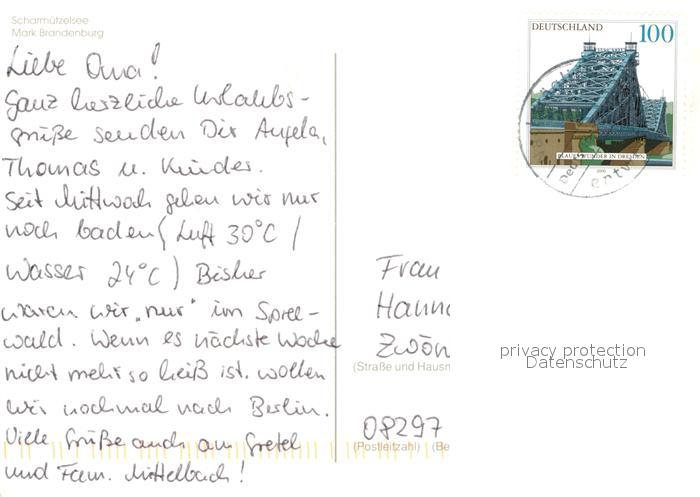 Scharmützelsee
Mark Brandenburg
Liebe Oma!
Ganz herzliche Urlaubs-
grüße senden Dir Angela,
Thomas u. Kinder.
Seit Mittwoch gehen wir nur
noch baden (Luft 30°C /
Wasser 24°C) Bisher
waren wir "nur" im Spree-
wald. Wenn es nächste Woche
nicht mehr so heiß ist, wollen
wir nochmal nach Berlin.
Viele Grüße auch an Gretel
und Fam. Mittelbach!
DEUTSCHLAND 100
BLAUES WUNDER IN DRESDEN
2000
Frau
Hann
Zwön
(Straße und Hausn
08297
(Postleitzahl) (Be
privacy protection
Datenschutz